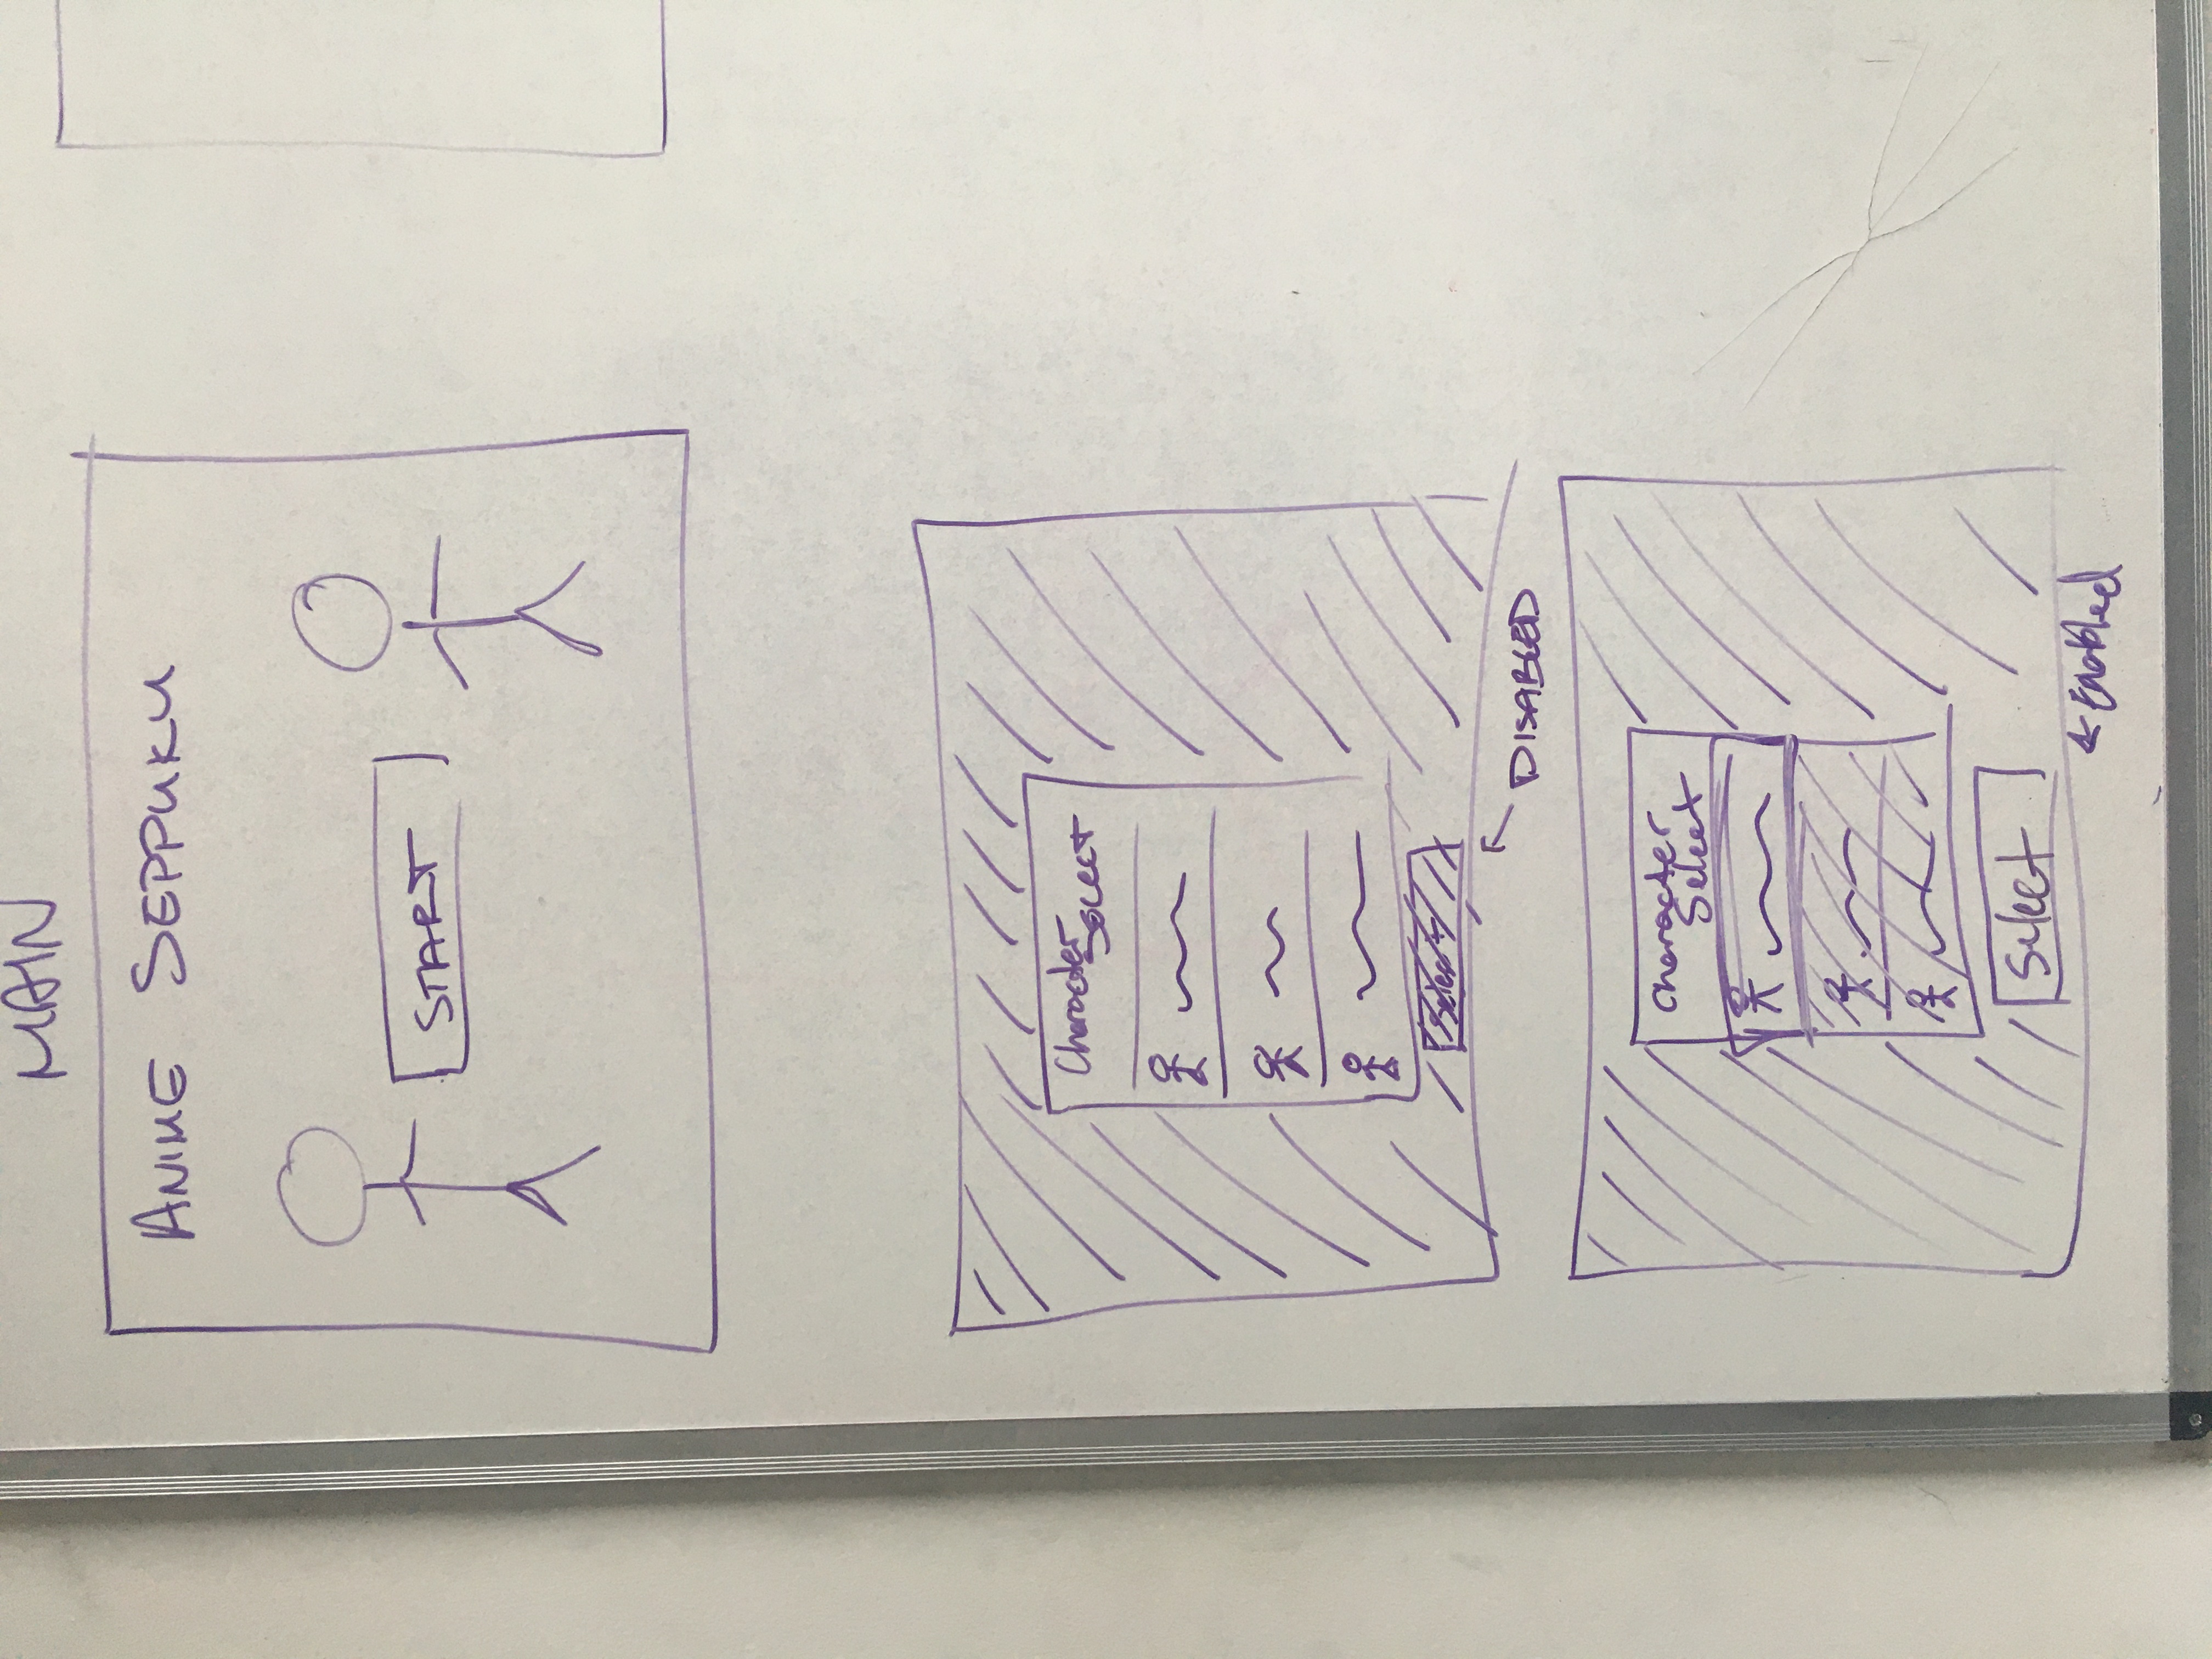 MAIN
ANIME SEPPUKU
START
Character
Select
Select
DISABLED
Character
Select
Select
Enabled